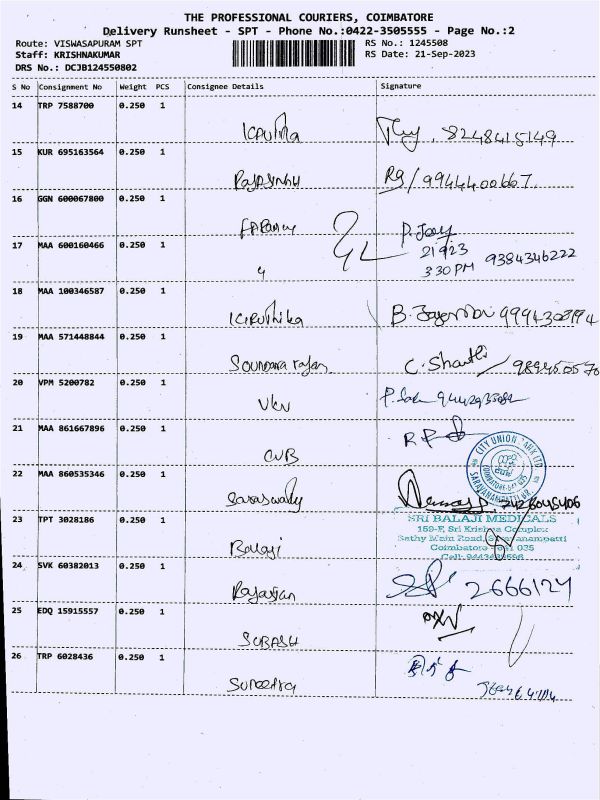 THE PROFESSIONAL COURIERS, COIMBATORE
Delivery Runsheet - SPT - Phone No.:0422-3505555 - Page No.:2
Route: VISWASAPURAM SPT RS No.: 1245508
Staff: KRISHNAKUMAR RS Date: 21-Sep-2023
DRS No.: DCJB124550802
S No Consignment No Weight PCS Consignee Details Signature
14 TRP 7588700 0.250 1
8248415149
15 KUR 695163564 0.250 1
Rajasingh Rg/ 9944400667.
16 GGN 600067800 0.250 1
P. Joey
17 MAA 600160466 0.250 1
21923 9384346222
3 30 PM
18 MAA 100346587 0.250 1
Kiruthika B.
19 MAA 571448844 0.250 1
Soundara rajan C. Shanthi
20 VPM 5200782 0.250 1
VKV
21 MAA 861667896 0.250 1
CUB
CITY UNION BANK LTD
SARAVANAMPATTI BR
22 MAA 860535346 0.250 1
Saraswathy
SRI BALAJI MEDICALS
23 TPT 3028186 0.250 1
159-F, Sri Krishna Complex
Sathy Main Road, Saravanampatti
Balaji Coimbatore - 641 035
24 SVK 60382013 0.250 1
Rajarajan 2666124
25 EDQ 15915557 0.250 1
SUBASH
26 TRP 6028436 0.250 1